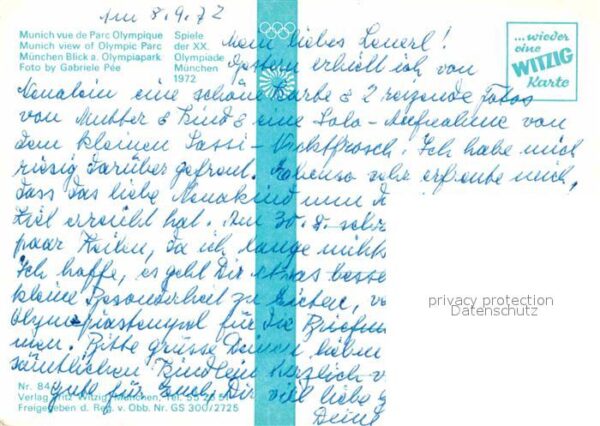 Am 8.9.72
Munich vue de Parc Olympique
Munich view of Olympic Parc
München Blick a. Olympiapark
Foto by Gabriele Pée
Spiele
der XX.
Olympiade
München
1972
...wieder
eine
WITZIG
Karte
Mein liebes Loverl!
Gestern erhielt ich von
eine schöne Karte & 2 reizende Fotos
von Mutter & Kind & eine Solo-Aufnahme von
dem kleinen Sassi- Ich habe mich
riesig darüber gefreut. Ebenso sehr erfreute mich,
dass das liebe nun d
Ziel erreicht hat. Am 30. 8. sehr
paar Zeilen, da ich lange nichts
Ich hoffe, es geht Dir etwas besse
kleine Besonderheit zu bieten, vo
Olympiastempel für die Briefm
men. Bitte grüsse Deinen lieben
sämtlichen Kindlein herzlich v
gute für Euch, Dir viel liebe g
Deine
privacy protection
Datenschutz
Nr. 84
Verlag Fritz Witzig, München, Tel. 55 26 51
Freigegeben d. Reg. v. Obb. Nr. GS 300/2725